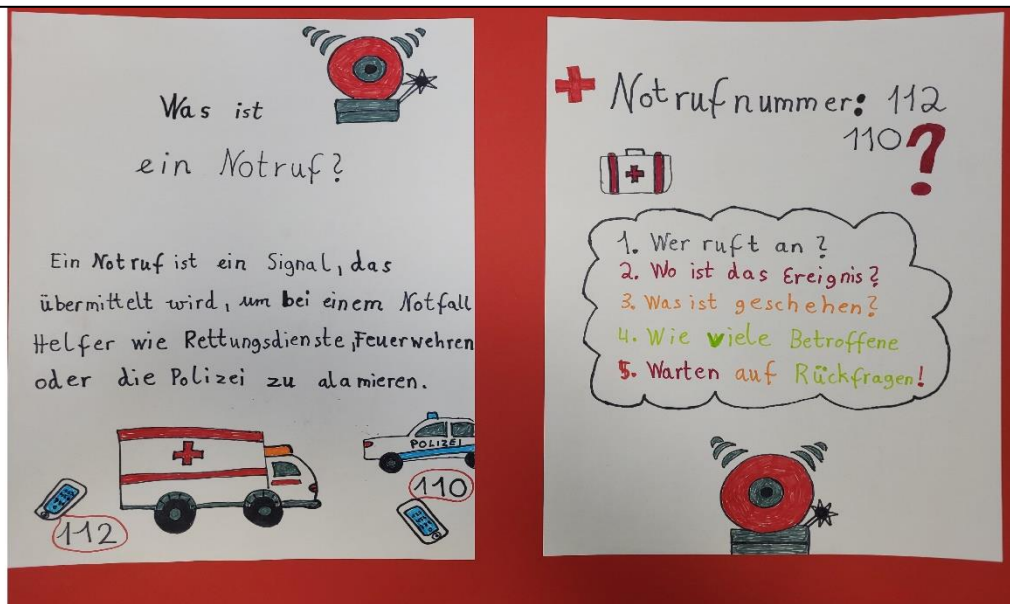 Was ist
ein Notruf?
Ein Notruf ist ein Signal, das
übermittelt wird, um bei einem Notfall
Helfer wie Rettungsdienste, Feuerwehren
oder die Polizei zu alamieren.
POLIZEI
110
112
Notrufnummer: 112
110?
1. Wer ruft an?
2. Wo ist das Ereignis?
3. Was ist geschehen?
4. Wie viele Betroffene
5. Warten auf Rückfragen!